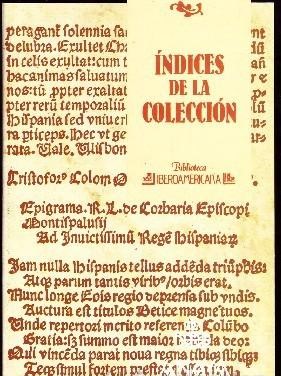 peragant̃ solennia sa
delubra. Exultet Ch
in celis exultat: cum t
bacanimas saluatum
nos: tū ꝓpter exaltat
pter rerū temporaliū
Hispania sed vniuer
ra particeps. Hec vt ge
rata. Vale. Ulisbon
ÍNDICES
DE LA
COLECCIÓN
Biblioteca
IBEROAMERICANA
Cristoforꝰ Colom
Epigrama. R. L. de Corbaria Episcopi
Montispalusij
Ad Inuictissimū Regē Hispaniaꝝ
Iam nulla Hispanis tellus addēda triūphis:
Atqȝ parum tantis viribꝰ orbis erat.
Nunc longe Eois regio deprensa sub vndis.
Auctura est titulos Betice magne tuos.
Unde repertori merito referenda Colūbo
Gratia: sȝ summo est maior deo:
Qui vincēda parat noua regna tibiqȝ sibiqȝ
Teqȝ simul fortem prestat